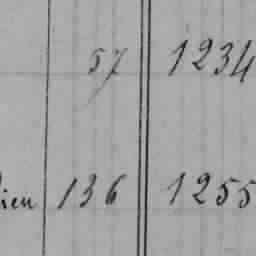 57 1234
136 1255